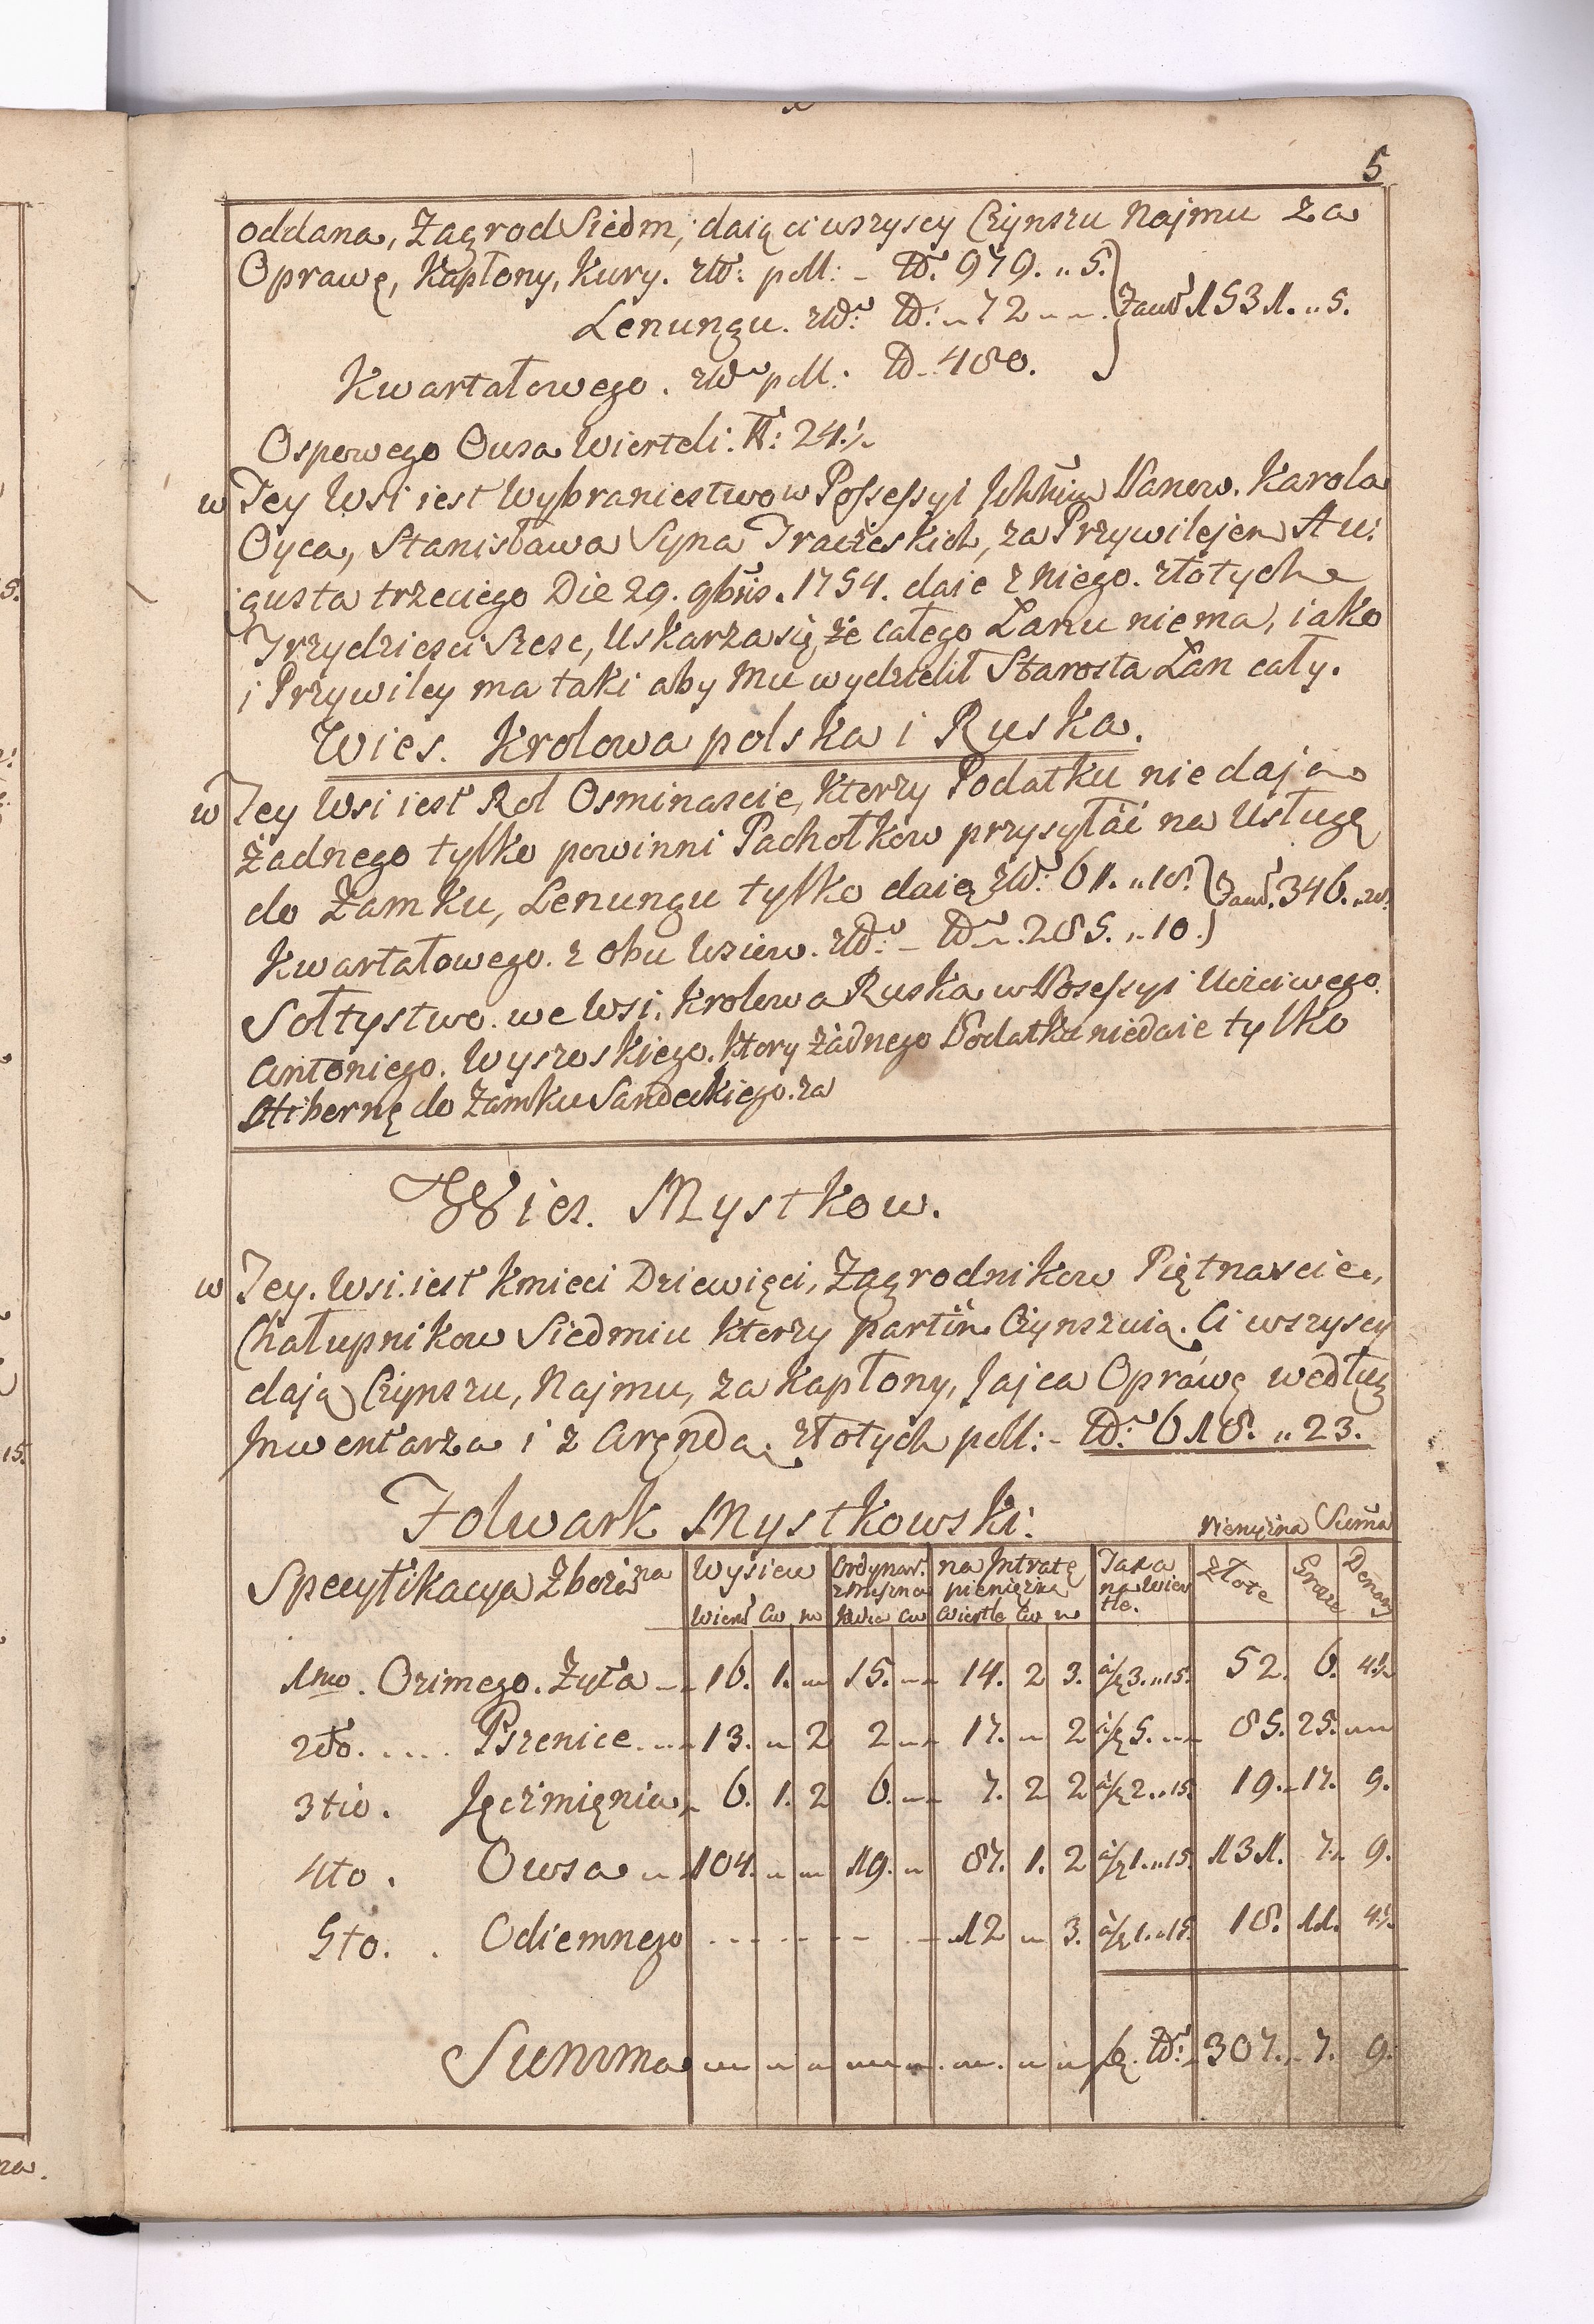 5
oddana, Zagrod Siedm, daią ci wszyscy Czynszu Najmu za
Oprawę, Kapłony, Kury. zł: poll: - 979. „ 5.
Lenungu. 72 - - . 1531. „ 5.
Kwartałowego. poll: 480.
Ospowego Owsa Wierteli: N: 24.½
w Tey Wsi iest Wybraniectwo w Possessyi Panow. Karola
Oyca, Stanisława Syna Traczeskich, za Przywilejem Au:
gusta trzeciego Die 29. 9bris. 1754. daie z niego. złotych
Trzydziesci Szesc, Uskarza się, że całego Łanu niema, iako
i Przywiley ma taki aby Mu wydzielił Starosta Łan cały.
Wies. Krolowa polska i Ruska.
w Tey Wsi iest Rol Osminascie, ktorzy Podatku nie dają
żadnego tylko powinni Pachołkow przysyłać na Usługę
do Zamku, Lenungu tylko daią 61. „ 18. 346. „ 28.
Kwartałowego. z obu Wsiow. 285. „ 10.
Sołtystwo. we Wsi. Krolowa Ruska w Possessyi Uczciwego.
Antoniego. Wysoskiego. ktory żadnego Podatku niedaie tylko
Hibernę do Zamku Sandeckiego. za
Wies. Mystkow.
w Tey. Wsi. iest Kmieci Dziewięci, Zagrodnikow Piętnascie,
Chałupnikow Siedmiu ktorzy partim Czynszuią. Ci wszyscy
dają Czynszu, Najmu, za Kapłony, Jajca Oprawę według
Inwentarza i z Arędą. złotych poll: - 618. „ 23.
Folwark Mystkowski.
Pieniężna Summa
Specyfikacya Zboża na Wysiew Ordynar: na Intratę Taxa Złote Grosze Denary
pieniężną na Wier
Wiert Cw Cw Wiertle Cw tle.
1mo. Ozimego. Żyta - - 16. 1. - 15. - - 14. 2 3. à 3. „ 15. 52. 6. 4½
2do. .... Pszenice. - - 13. - 2 2 - - 17. - 2 à 5. - - 85. 25. -
3tio. Jęczmięnia - 6. 1. 2 6. - - 7. 2 2 à 2. „ 15. 19. - 17. 9.
4to. Owsa - - 104. - - 19. - 87. 1. 2 à 1. „ 15. 131. 7. 9.
5to. . Odiemnego - - - - - - 12 - 3. à 1. „ 15. 18. 11. 4½
Summa - - - - - - - - 307. - 7. 9.